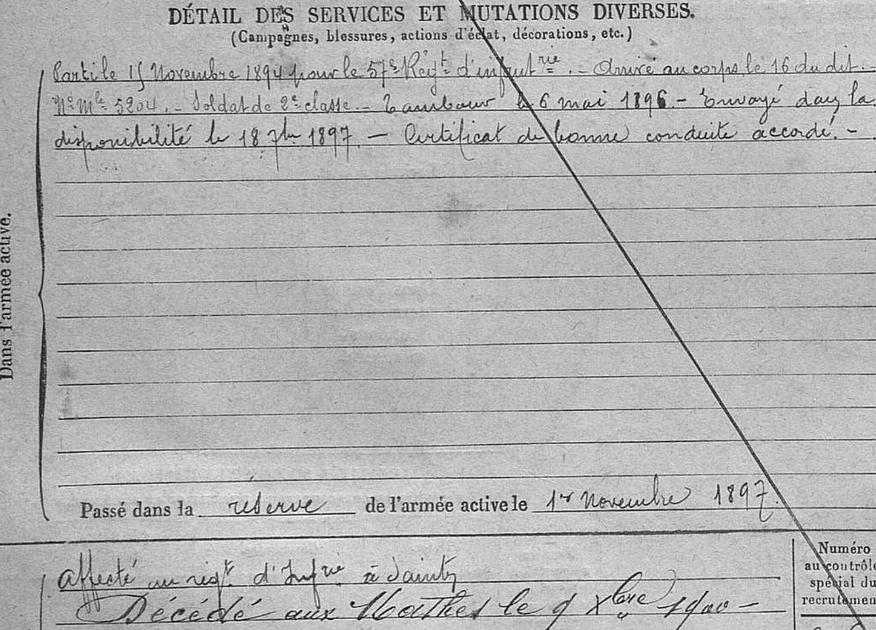 DÉTAIL DES SERVICES ET MUTATIONS DIVERSES.
(Campagnes, blessures, actions d'éclat, décorations, etc.)
Parti le 15 Novembre 1894 pour le 57e Régt d'infantrie. - Arrivé au corps le 16 du dit. -
No Mle 5204. - Soldat de 2e classe. - Tambour le 6 mai 1896. - Envoyé dans la
disponibilité le 18 7bre 1897. - Certificat de bonne conduite accordé. -
Dans l'armée active.
Passé dans la réserve de l'armée active le 1er Novembre 1897.
affecté au régt d'Infrie à Saintes
Décédé aux Mathes le 9 Xbre 1900 -
Numéro
au contrôle
spécial du
recrutement